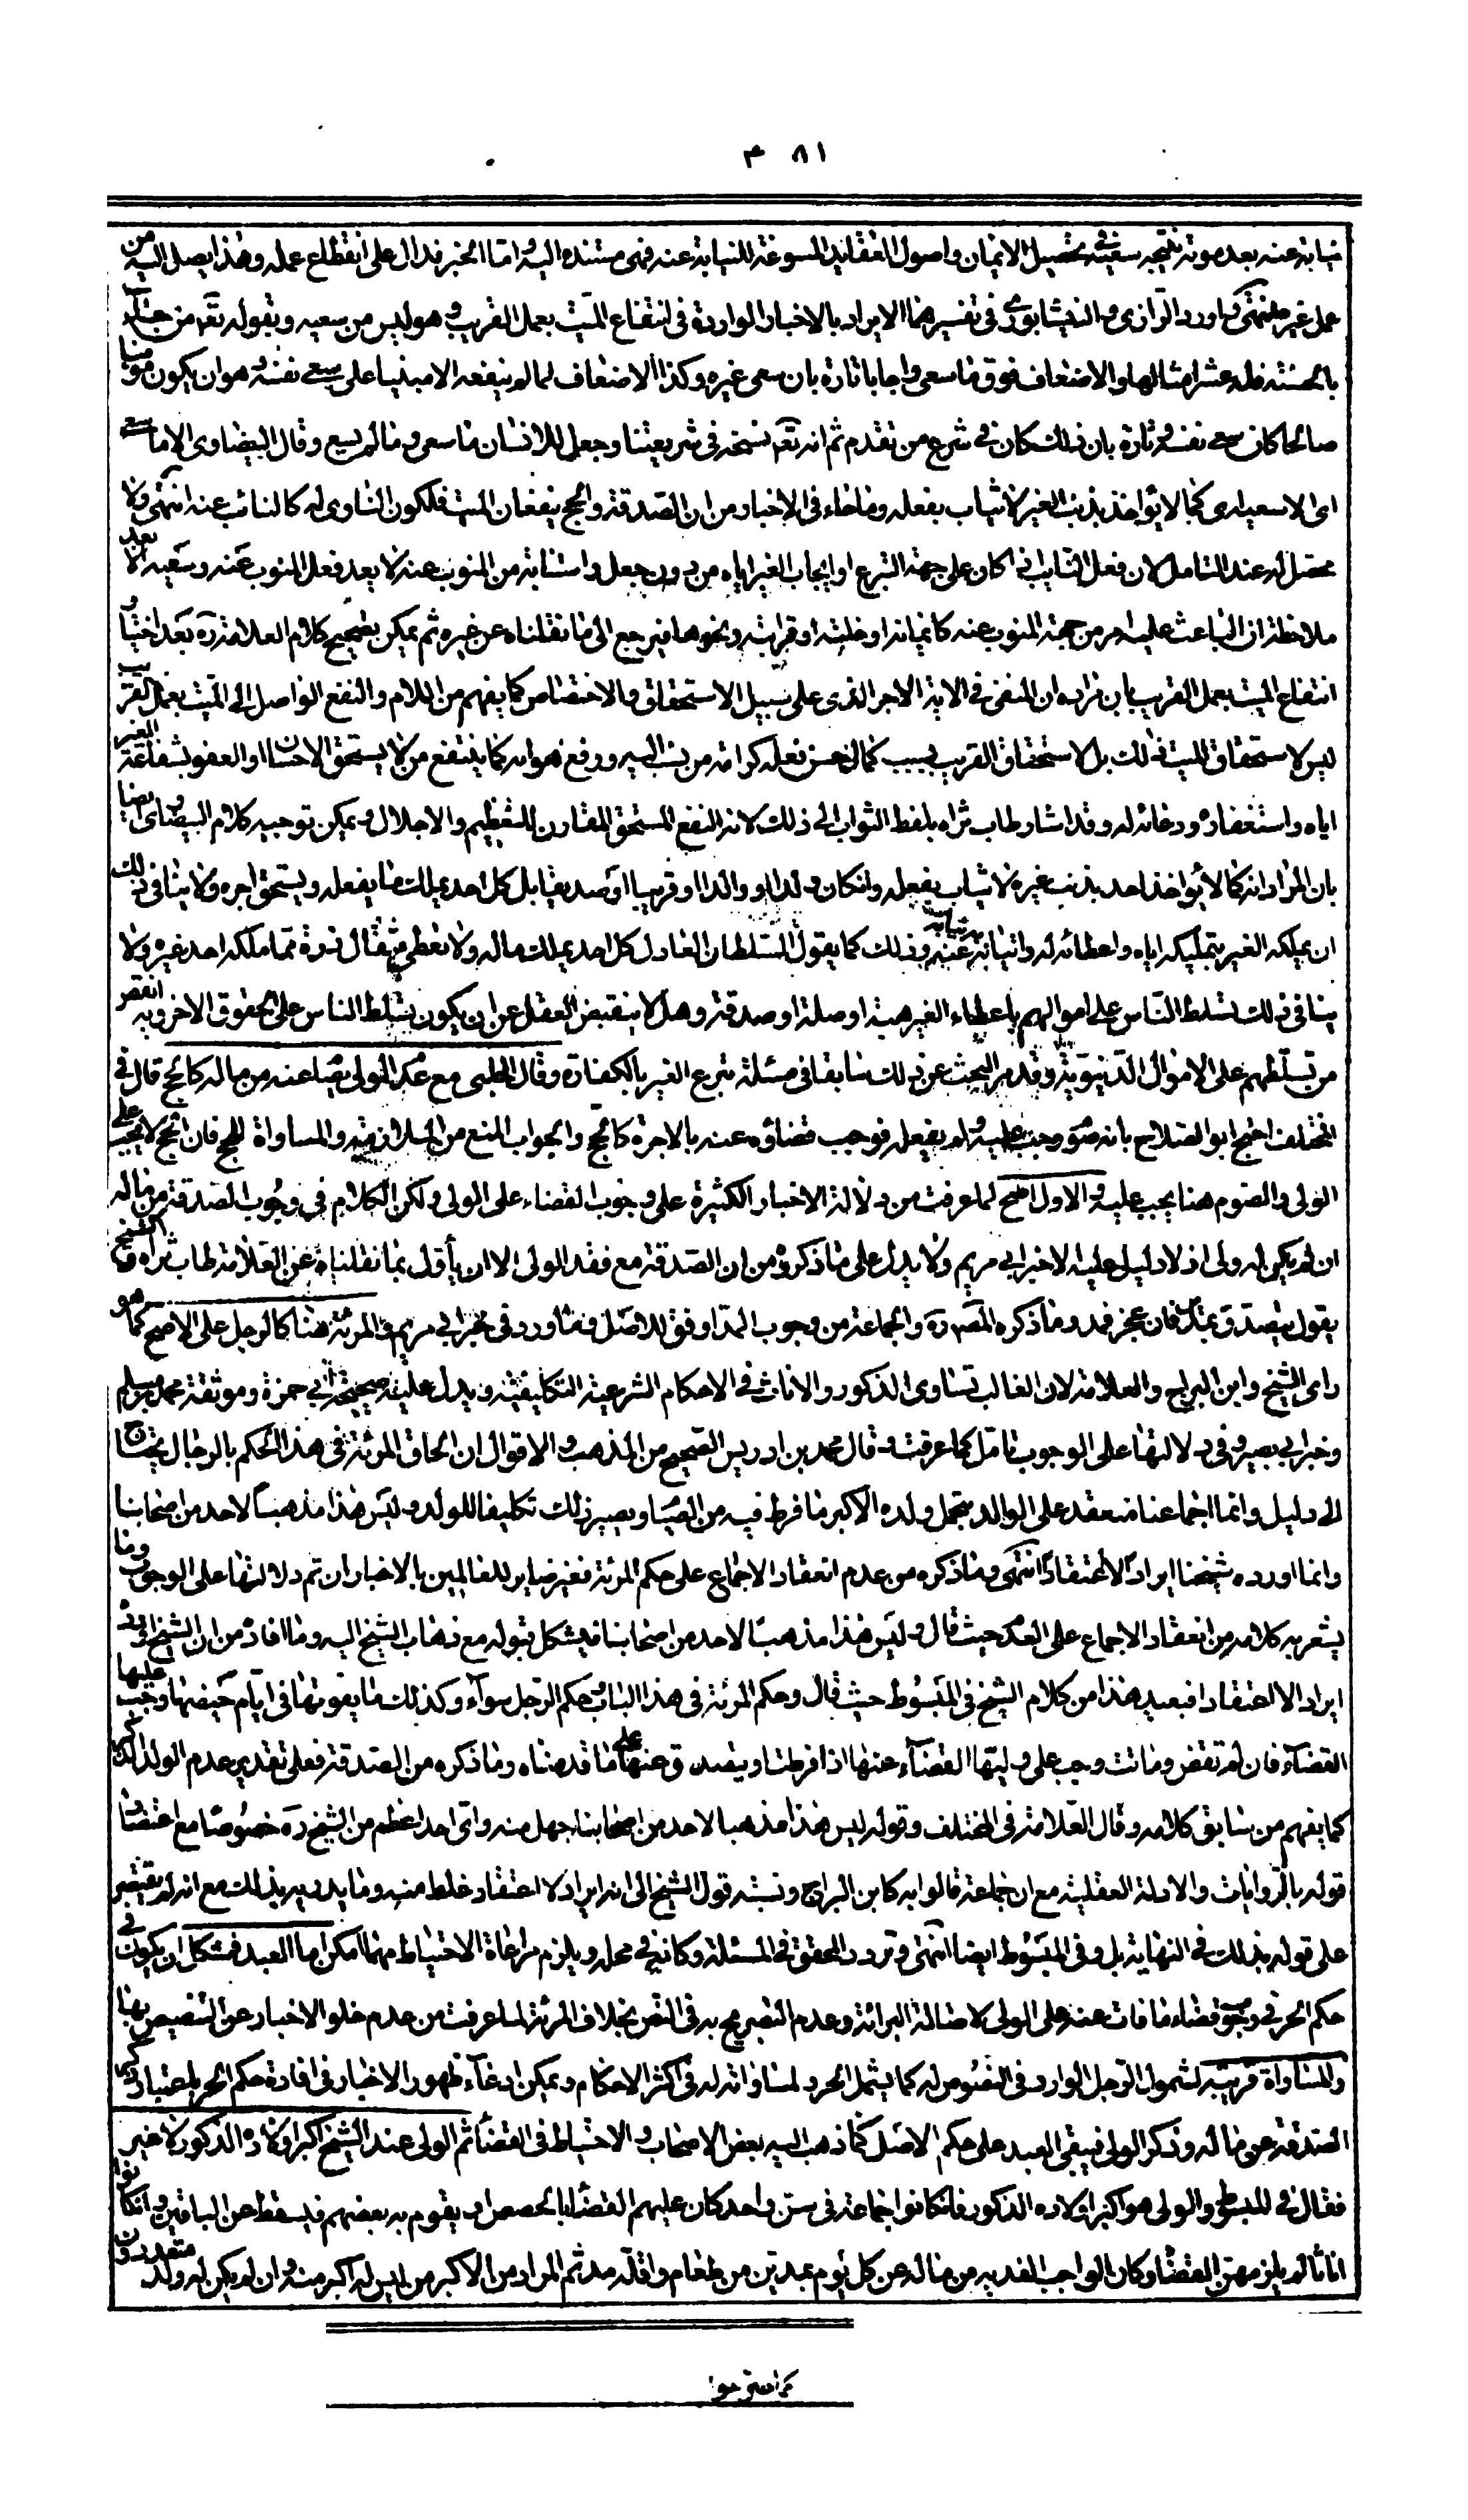 ٤٨١
نيابة عنه بعد موته نتيجه سعيه في تحصيل الايمان واصول العقايد المسوغة للنيابة عنه فهى مستندة اليه واما الخبر فدال على انقطاع عمله وهذا يصل اليه من
عمل غيره انتهى واورد الرازى والنيشابورى في تفسيرهما الايراد بالاخبار الواردة في انتفاع الميت بعمل القريب وهو ليس من سعيه وبقوله تعَ من جاء
بالحسنة فله عشر امثالها والاضعاف فوق ما سعى واجابا تارة بان سعى غيره وكذا الاضعاف لما لم ينفعه الا مبنيا على سعى نفسه وهو ان يكون مؤمنا
صالحا كان سعى نفسه وتارة بان ذلك كان في شرع من تقدم ثم انه تعَ نسخه في شريعتنا وجعل للانسان ما سعى وما لم يسع وقال البيضاوى الا ما سعى
اى الا سعيه اى كما لا يؤاخذ بذنب الغير لا يثاب بفعله وما جاء في الاخبار من ان الصدقة والحج ينفعان الميت فلكون الناوى له كالنائب عنه انتهى ولا
محصل له عند التامل لان فعل النايب اذا كان على جهة التبرع او ايجاب الغير اياه من دون جعل واستنابة من المنوب عنه لا يعد فعل المنوب عنه وسعيه الا بعد
ملاحظة ان الباعث عليه امر من جهة المنوب عنه كايمانه او خلته او قرابته ونحوها فيرجع الى ما نقلناه عن غيره ثم يمكن تصحيح كلام العلامة ره بعد اختيار
انتفاع الميت بعمل القريب بان مراده ان المنفى في الاية الاجر الذى على سبيل الاستحقاق والاختصاص كما يفهم من اللام والنفع الواصل الى الميت بعمل القريب
ليس لاستحقاق الميت ذلك بل لاستحقاق القريب بسبب كمال حسن فعله كرامة من ينسب اليه ورفع هوانه كما ينتفع من لا يستحق الاحسان او العفو بشفاعة الغير
اياه واستغفاره ودعائه له وقد اشار طاب ثراه بلفظ الثواب الى ذلك لانه النفع المستحق المقارن للتعظيم والاجلال ويمكن توجيه كلام البيضاوى ايضا
بان المراد انه كما لا يؤاخذ احد بذنب غيره لا يثاب بفعله وان كان ولدا او والدا او قريبا او صديقا بل كل احد يملك ما يفعله ويستحق اجره ولا ينافى ذلك
ان يملكه الغير بتمليكه اياه واعطائه له واتيانه عنه بنيابته وذلك كما يقول السلطان العادل كل احد يملك ماله ولا نعطى مثقال ذرة مما ملكه احد غيره ولا
ينافى ذلك تسلط الناس على اموالهم باعطاء الغير هبة او صلة او صدقة وهل لا ينقبض العقل عن ان يكون تسلط الناس على الحقوق الاخروية انقص
من تسلطهم على الاموال الدنيوية وقد مر البحث عن ذلك سابقا في مسئلة تبرع الغير بالكفارة وقال الحلبى مع عدم الولى يصام عنه من ماله كالحج قال في
المختلف احتج ابو الصلاح بانه صوم وجب عليه ولم يفعله فوجب قضاؤه عنه بالاجرة كالحج والجواب المنع من الملازمة والمساواة للحج فان الحج لا يجب على
الولى والصوم هنا يجب عليه والاول اصح لما عرفت من دلالة الاخبار الكثيرة على وجوب القضاء على الولى ولكن الكلام في وجوب الصدقة من ماله
ان لم يكن له ولى اذ لا دليل عليه الا خبر ابى مريم ولا يدل على ما ذكروه من ان الصدقة مع فقد الولى الا ان يأول بما نقلناه عن العلامة طاب ثراه والشيخ
يقول يتصدق بمدين فان عجز فمد وما ذكره المصَ ره والجماعة من وجوب المد اوفق للاصل وما ورد في خبر ابى مريم والمرئة هنا كالرجل على الاصح كما هو
راى الشيخ وابن البراج والعلامة لان الغالب تساوى الذكور والاناث في الاحكام الشرعية التكليفية ويدل عليه صحيحة ابى حمزة وموثقة محمد بن مسلم
وخبر ابى بصير وفى دلالتها على الوجوب تامل كما عرفت وقال محمد بن ادريس الصحيح من المذهب والاقوال ان الحاق المرئة في هذا الحكم بالرجال يحتاج
الى دليل وانما اجماعنا منعقد على الوالد يتحمل ولده الاكبر ما فرط فيه من الصيام ويصير ذلك تكليفا للولد وليس هذا مذهباً لاحد من اصحابنا
وانما اورده شيخنا ايراداً لا اعتقاداً انتهى وما ذكره من عدم انعقاد الاجماع على حكم المرئة فغير ضاير للقائلين بالاخبار ان تم دلالتها على الوجوب وما
يشعر به كلامه من انعقاد الاجماع على العدم حيث قال وليس هذا مذهباً لاحد من اصحابنا فيشكل قبوله مع ذهاب الشيخ اليه وما افاده من ان الشيخ اورده
ايرادا لا اعتقادا فبعيد هذا من كلام الشيخ في المبسوط حيث قال وحكم المرئة في هذا الباب حكم الرجل سواء وكذلك ما يفوتها في ايام حيضها وجب عليها
القضاء فان لم تقض وماتت وجب على وليها القضاء عنها اذا فرطت او يتصدق عنها على ما قدمناه وما ذكره من الصدقة فعلى تقدير عدم الولد الذكر
كما يفهم من سابق كلامه وقال العلامة في المختلف وقوله ليس هذا مذهبا لاحد من اصحابنا جهل منه واى احد اعظم من الشيخ ره خصوصا مع اعتضاد
قوله بالروايات والادلة العقلية مع ان جماعة قالوا به كابن البراج ونسبته قول الشيخ الى انه ايراد لا اعتقاد غلط منه وما يدريه بذلك مع انه لم يقتصر
على قوله بذلك في النهاية بل وفى المبسوط ايضا انتهى وتردد المحقق في المسئلة وكانه في محله ويلزم مراعاة الاحتياط مهما امكن اما العبد فمشكل ان يكون في
حكم الحر في وجوب قضاء ما فات عنه على الولى لاصالة البرائة وعدم التصريح به في النص بخلاف المرئة لما عرفت من عدم خلو الاخبار عن التنصيص بها
وللمساواة قريبه لشمول الرجل الوارد في النصوص له كما يشمل الحر ولمساواته له في اكثر الاحكام ويمكن ادعاء ظهور الاخبار في افادة حكم الحر باعتبار ذكر
الصدقة عن ماله وذكر الولى فيبقى العبد على حكم الاصل كما ذهب اليه بعض الاصحاب والاحتياط في القضاء ثم الولى عند الشيخ اكبر اولاده الذكور لا غير
فقال في المبسوط والولى هو اكبر اولاده الذكور فان كانوا جماعة في سن واحد كان عليهم القضاء بالحصص او يقوم به بعضهم فيسقط عن الباقين وان كانوا
اناثا لم يلزمهن القضاء وكان الواجب الفدية من ماله عن كل يوم بمدين من طعام واقله مد ثم المراد من الاكبر من ليس له اكبر منه وان لم يكن له ولد متعددون